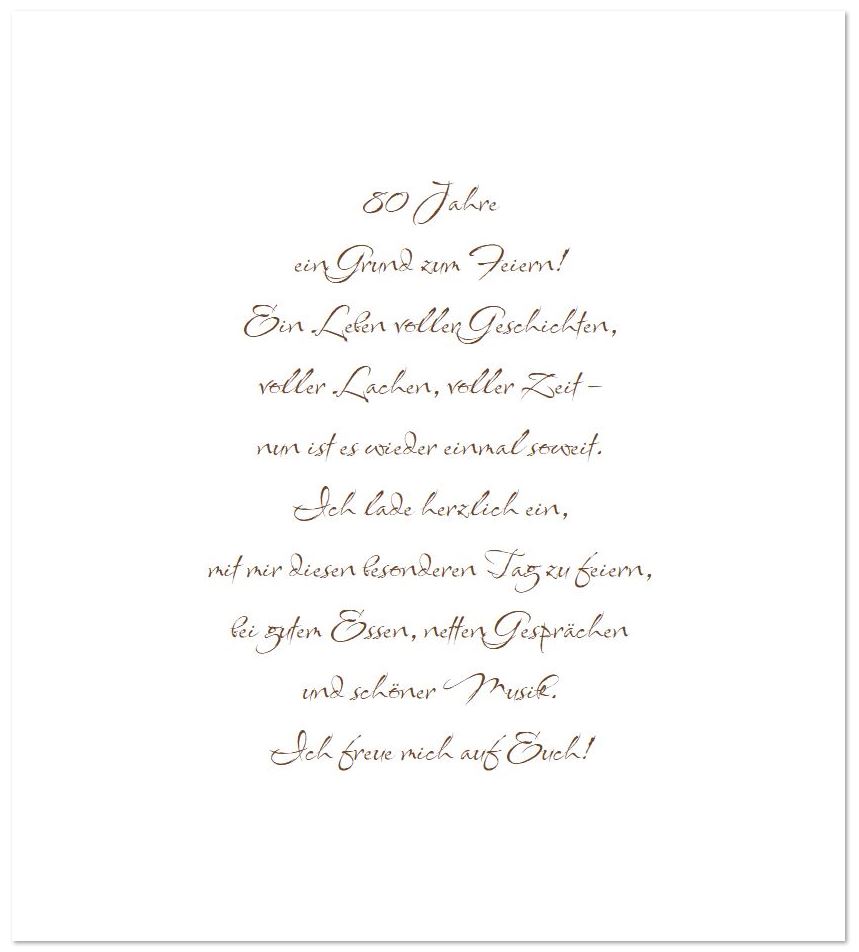 80 Jahre
ein Grund zum Feiern!
Ein Leben voller Geschichten,
voller Lachen, voller Zeit –
nun ist es wieder einmal soweit.
Ich lade herzlich ein,
mit mir diesen besonderen Tag zu feiern,
bei gutem Essen, netten Gesprächen
und schöner Musik.
Ich freue mich auf Euch!